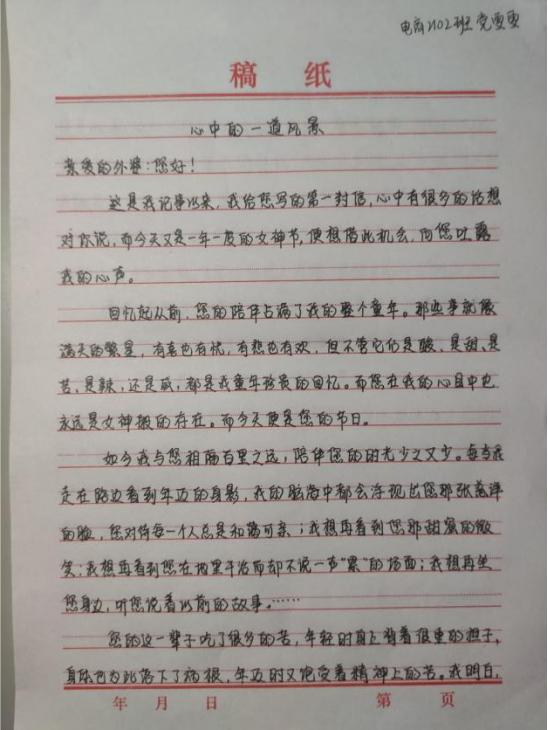 电商2102班 党雯雯
稿 纸
心中的一道风景
亲爱的外婆:您好!
这是我记事以来,我给您写的第一封信,心中有很多的话想
对你说,而今天又是一年一度的女神节,便想借此机会,向您吐露
我的心声。
回忆起从前,您的陪伴占满了我的整个童年。那些事就像
满天的繁星,有喜也有忧,有悲也有欢,但不管它们是酸、是甜、是
苦、是辣,还是咸,都是我童年珍贵的回忆。而您在我的心目中也
永远是女神般的存在。而今天便是您的节日。
如今我与您相隔百里之远,陪伴您的时光少之又少。每当我
走在路边看到年迈的身影,我的脑海中都会浮现出您那张慈祥
的脸,您对待每一个人总是和蔼可亲;我想再看到您那甜蜜的微
笑;我想再看到您在地里干活而却不说一声"累"的场面;我想再坐
您身边,听您说着以前的故事。……
您的这一辈子吃了很多的苦,年轻时肩上背着很重的担子,
身体也为此落下了病根,年迈时又饱受着精神上的苦。我明白,
年 月 日 第 页